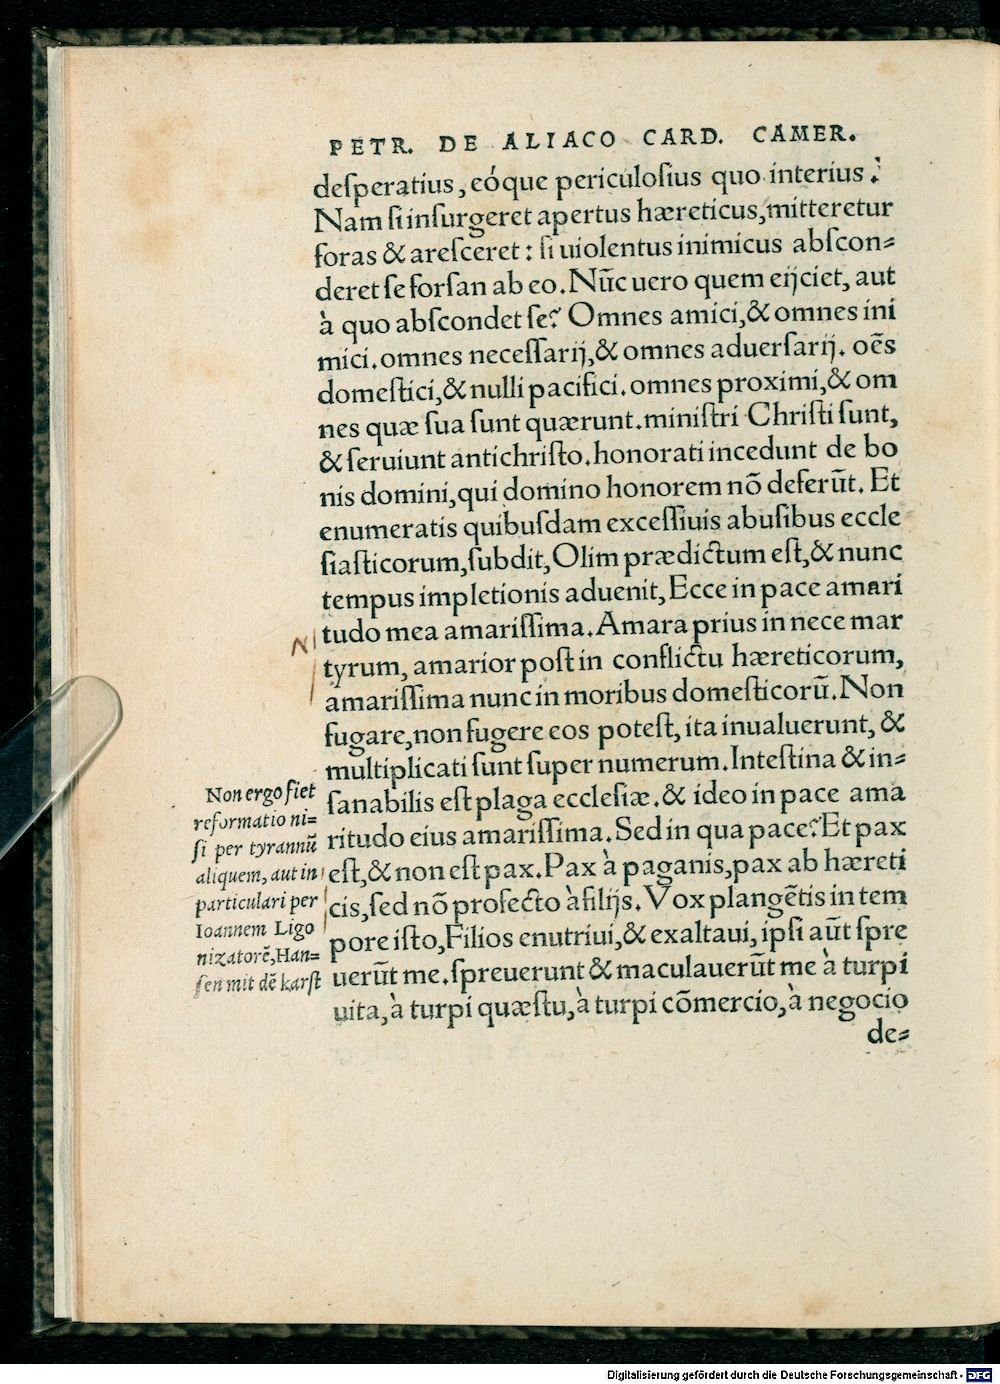 PETR. DE ALIACO CARD. CAMER.
deſperatius, eóque periculoſius quo interius.
Nam ſi inſurgeret apertus hæreticus, mitteretur
foras & areſceret: ſi uiolentus inimicus abſcon=
deret ſe forſan ab eo. Nūc uero quem eijciet, aut
à quo abſcondet ſe? Omnes amici, & omnes ini
mici. omnes neceſſarij, & omnes aduerſarij. oēs
domeſtici, & nulli pacifici. omnes proximi, & om
nes quæ ſua ſunt quærunt. miniſtri Chriſti ſunt,
& ſeruiunt antichriſto. honorati incedunt de bo
nis domini, qui domino honorem nō deferūt. Et
enumeratis quibuſdam exceſſiuis abuſibus eccle
ſiaſticorum, ſubdit, Olim prædictum eſt, & nunc
tempus impletionis aduenit, Ecce in pace amari
tudo mea amariſſima. Amara prius in nece mar
tyrum, amarior poſt in conflictu hæreticorum,
amariſſima nunc in moribus domeſticorū. Non
fugare, non fugere eos poteſt, ita inualuerunt, &
multiplicati ſunt ſuper numerum. Inteſtina & in=
ſanabilis eſt plaga eccleſiæ. & ideo in pace ama
ritudo eius amariſſima. Sed in qua pace? Et pax
eſt, & non eſt pax. Pax à paganis, pax ab hæreti
cis, ſed nō profecto à filijs. Vox plangētis in tem
pore iſto, Filios enutriui, & exaltaui, ipſi aūt ſpre
uerūt me. ſpreuerunt & maculauerūt me à turpi
uita, à turpi quæſtu, à turpi cōmercio, à negocio
de=
Non ergo fiet
reformatio ni=
ſi per tyrannū
aliquem, aut in
particulari per
Ioannem Ligo
nizatorē, Han=
ſen mit dē karſt
Digitalisierung gefördert durch die Deutsche Forschungsgemeinschaft - DFG